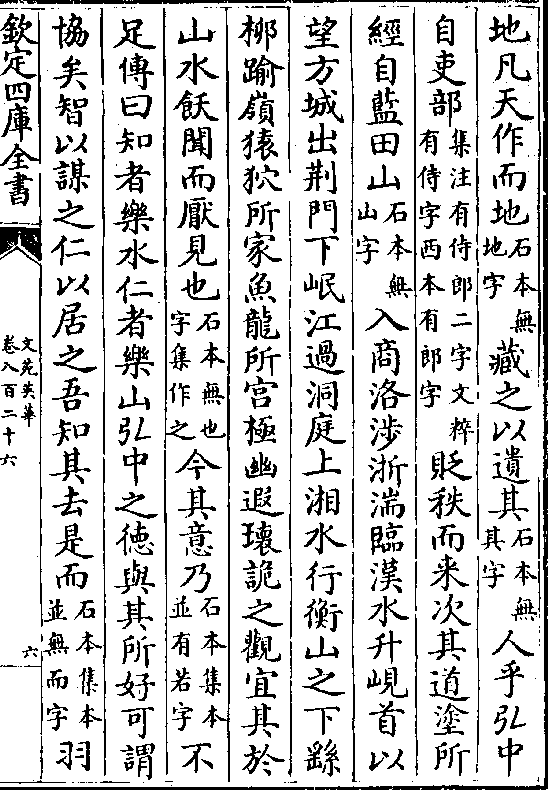 地凡天作而地石本無地字藏之以遺其石本無其字人乎弘中
自吏部集注有侍郎二字文粹有侍字西本有郎字貶秩而来次其道塗所
經自藍田山石本無山字入商洛涉浙湍臨漢水升峴首以
望方城出荆門下岷江過洞庭上湘水行衡山之下繇
郴踰嶺猿狖所家魚龍所宫極幽遐瓌詭之觀宜其於
山水飫聞而厭見也石本無也字集作之今其意乃石本集本並有若字不
足傳曰知者樂水仁者樂山弘中之徳與其所好可謂
協矣智以謀之仁以居之吾知其去是而石本集本並無而字羽
欽定四庫全書
文苑英華
卷八百二十六
六